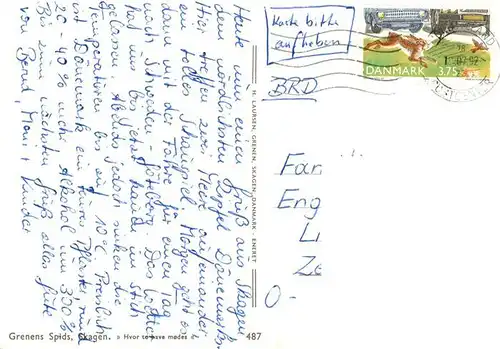 Heute nun einen Gruß aus Skagen,
dem nördlichsten Zipfel Dänemarks.
Hier treffen zwei Meere aufeinander
ein tolles Schauspiel. Morgen geht es
dann mit der Fähre für einen Tag
nach Schweden - Göteborg. Das Wetter
hat uns bis jetzt kaum im Stich
gelassen. Abends jedoch sinken die
Temperaturen bis auf 10°C. Preislich
ist Dänemark ein teures Pflaster, rund
20-40% mehr, Alkohol um 300%
Bis zum nächsten Gruß alles Gute
von Bernd, Moni + Kinder
Grenens Spids, Skagen. » Hvor to have mødes «
487
H. LAURSEN, GRENEN, SKAGEN, DANMARK - ENERET
Karte bitte
aufheben
BRD
DANMARK 3.75
Fam
Eng
Li
Ze
O-